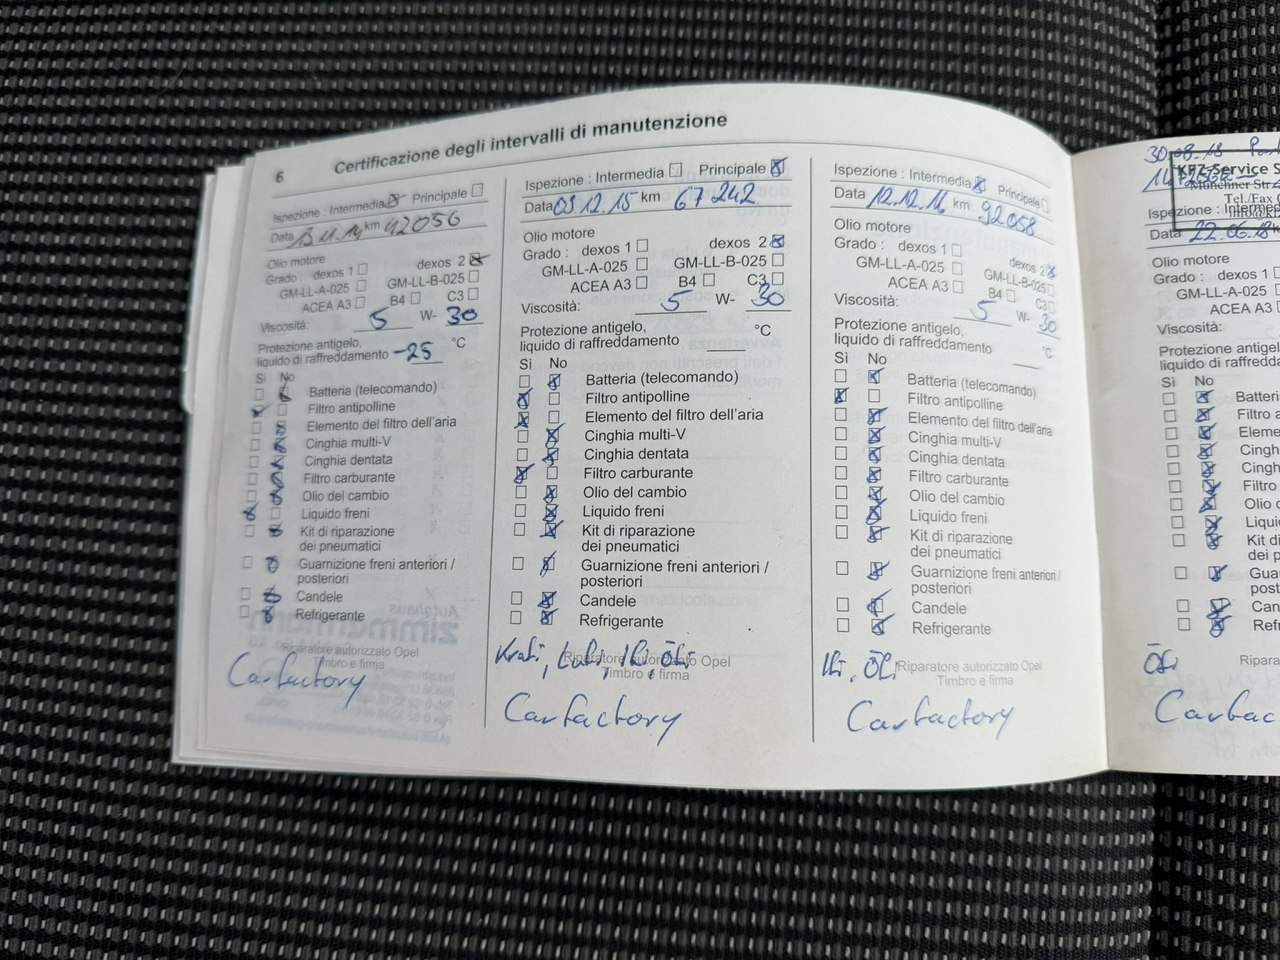 6
Certificazione degli intervalli di manutenzione
Ispezione : Intermedia Principale
Data 13.11.14 km 42056
Olio motore
Grado : dexos 1 dexos 2
GM-LL-A-025 GM-LL-B-025
ACEA A3 B4 C3
Viscosità: 5 W- 30
Protezione antigelo,
liquido di raffreddamento -25 °C
Sì No
Batteria (telecomando)
Filtro antipolline
Elemento del filtro dell'aria
Cinghia multi-V
Cinghia dentata
Filtro carburante
Olio del cambio
Liquido freni
Kit di riparazione
dei pneumatici
Guarnizione freni anteriori /
posteriori
Candele
Refrigerante
Riparatore autorizzato Opel
Timbro e firma
Carfactory
Ispezione : Intermedia Principale
Data 03.12.15 km 67242
Olio motore
Grado : dexos 1 dexos 2
GM-LL-A-025 GM-LL-B-025
ACEA A3 B4 C3
Viscosità: 5 W- 30
Protezione antigelo,
liquido di raffreddamento °C
Sì No
Batteria (telecomando)
Filtro antipolline
Elemento del filtro dell'aria
Cinghia multi-V
Cinghia dentata
Filtro carburante
Olio del cambio
Liquido freni
Kit di riparazione
dei pneumatici
Guarnizione freni anteriori /
posteriori
Candele
Refrigerante
Krafi, Lufi, Ifi, Öfi
Riparatore autorizzato Opel
Timbro e firma
Carfactory
Ispezione : Intermedia Principale
Data 12.12.16 km 92058
Olio motore
Grado : dexos 1 dexos 2
GM-LL-A-025 GM-LL-B-025
ACEA A3 B4 C3
Viscosità: 5 W- 30
Protezione antigelo,
liquido di raffreddamento °C
Sì No
Batteria (telecomando)
Filtro antipolline
Elemento del filtro dell'aria
Cinghia multi-V
Cinghia dentata
Filtro carburante
Olio del cambio
Liquido freni
Kit di riparazione
dei pneumatici
Guarnizione freni anteriori /
posteriori
Candele
Refrigerante
Ifi, Öfi
Riparatore autorizzato Opel
Timbro e firma
Carfactory
30.08.18
KFZ-Service S
Münchner Str.
Tel./Fax
Ispezione : Interme
Data 22.06.18 k
Olio motore
Grado : dexos 1
GM-LL-A-025
ACEA A3
Viscosità:
Protezione antigel
liquido di raffredda
Sì No
Batteri
Filtro a
Eleme
Cingh
Cingh
Filtro
Olio c
Liqui
Kit di
dei p
Gua
post
Can
Refr
Öfi
Ripara
T
Carfac